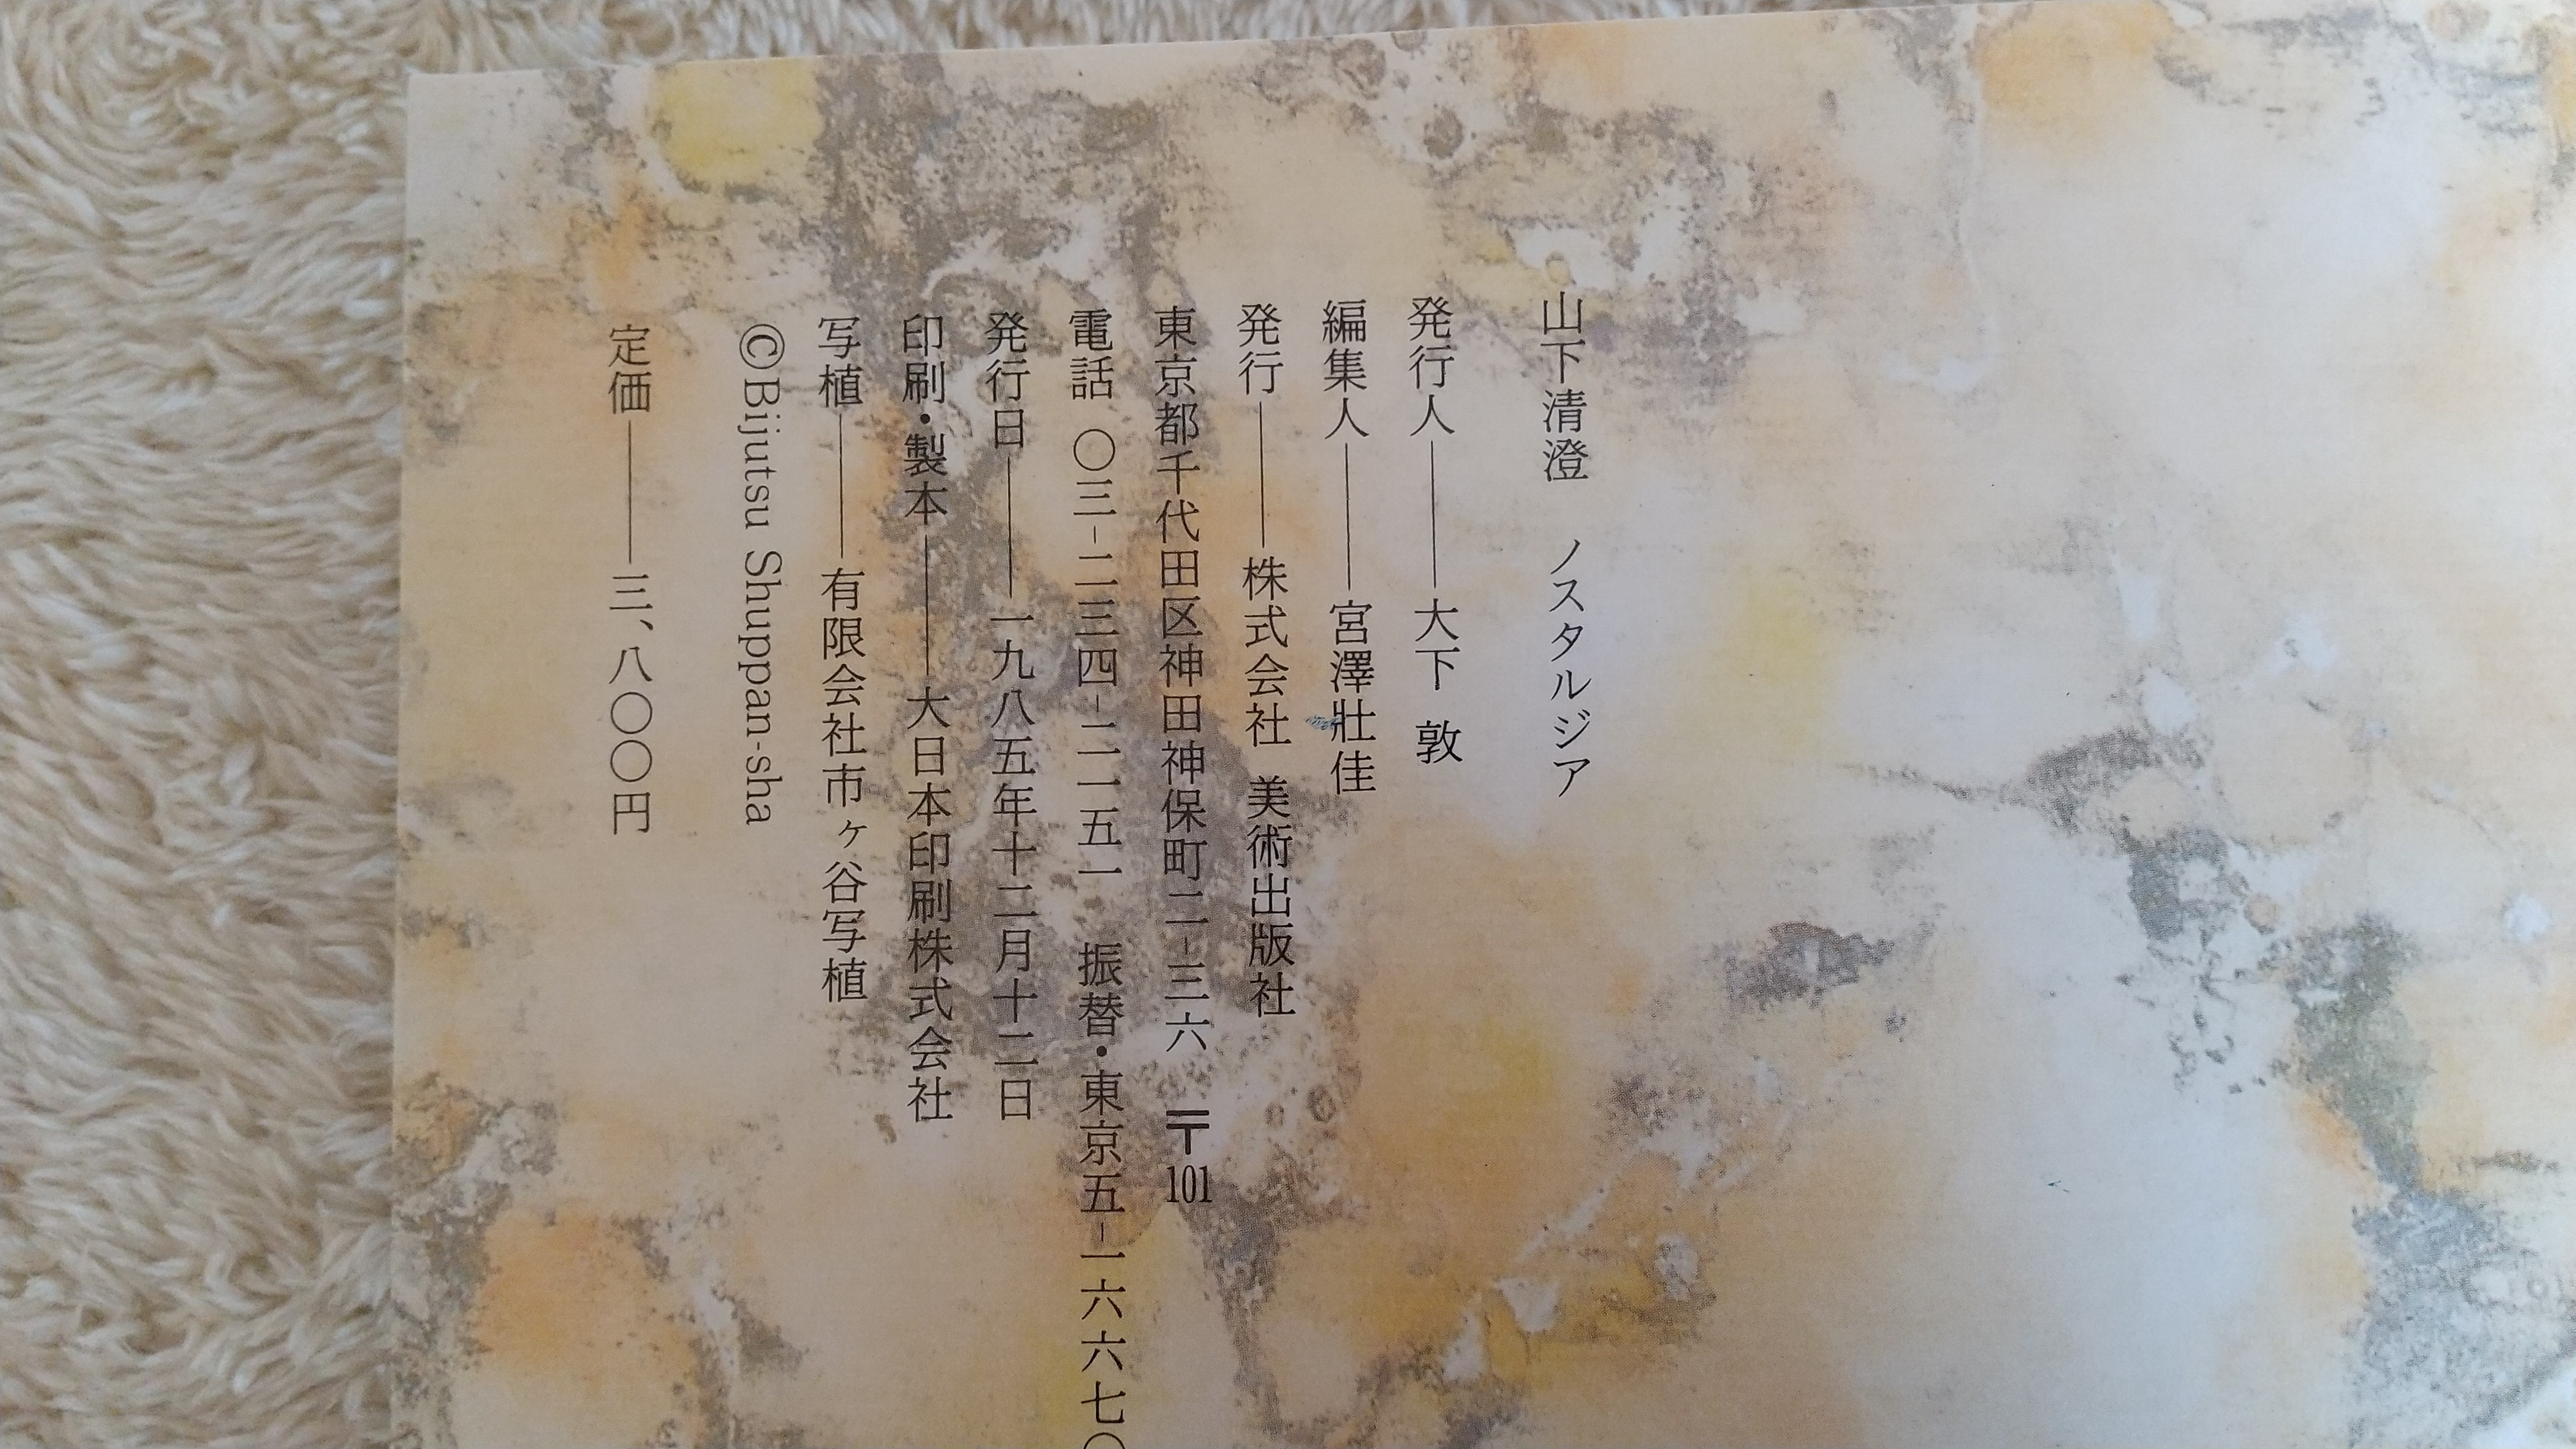 山下清澄　ノスタルジア
発行人――大下 敦
編集人――宮澤壯佳
発行――株式会社 美術出版社
東京都千代田区神田神保町二-三六 〒101
電話 〇三-二三四-二一五一 振替・東京五-一六六七〇
発行日――一九八五年十二月十二日
印刷・製本――大日本印刷株式会社
写植――有限会社市ヶ谷写植
©Bijutsu Shuppan-sha
定価――三、八〇〇円